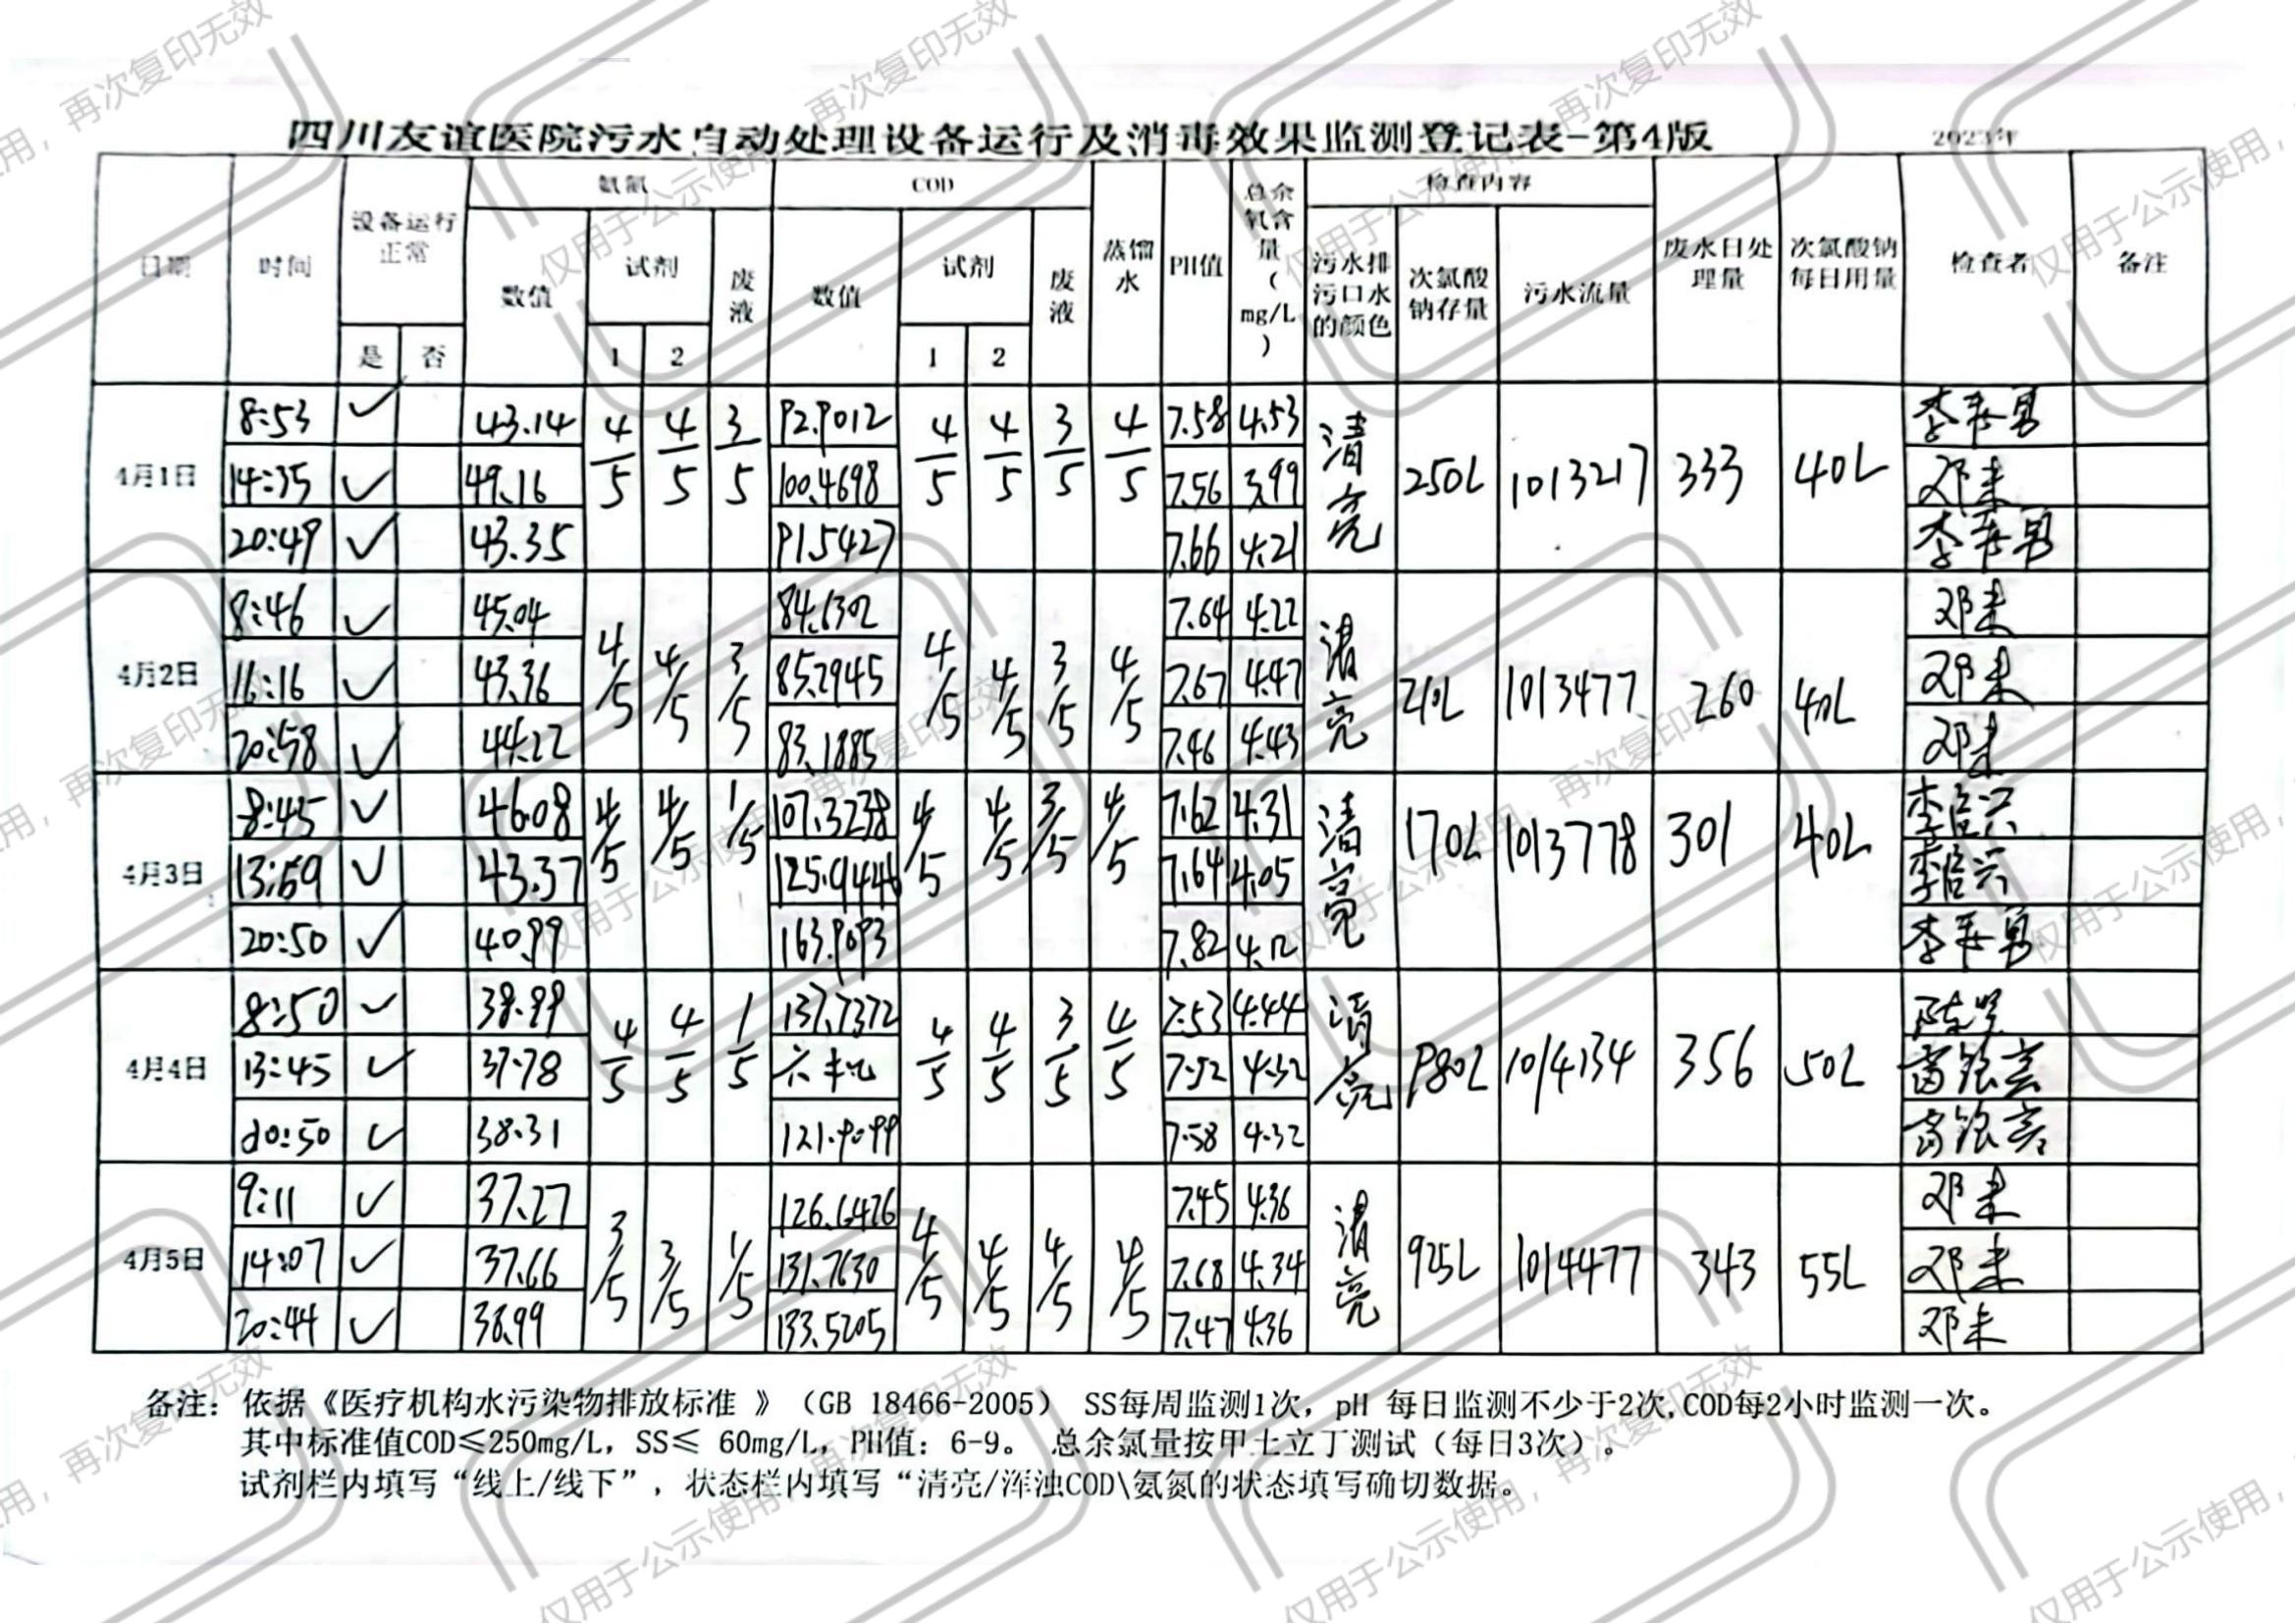 四川友谊医院污水自动处理设备运行及消毒效果监测登记表-第4版 2023年
日期 时间 设备运行正常 氨氮 COD 蒸馏水 PH值 总余氧含量(mg/L) 检查内容 废水日处理量 次氯酸钠每日用量 检查者 备注
数值 试剂 废液 数值 试剂 废液 污水排污口水的颜色 次氯酸钠存量 污水流量
是 否 1 2 1 2
4月1日 4/5 4/5 3/5 4/5 4/5 3/5 4/5 清亮 250L 1013217 333 40L
8:53 ✓ 43.14 92.9012 7.58 4.53
14:35 ✓ 49.16 100.4698 7.56 3.99 邓未
20:49 ✓ 43.35 91.5427 7.66 4.21
4月2日 4/5 4/5 3/5 4/5 4/5 3/5 4/5 清亮 210L 1013477 260 40L
8:46 ✓ 45.04 84.6302 7.64 4.22 邓未
16:16 ✓ 43.36 85.2945 7.67 4.47 邓未
20:58 ✓ 44.22 83.1885 7.46 4.43 邓未
4月3日 4/5 4/5 1/5 4/5 4/5 3/5 4/5 清亮 170L 1013778 301 40L
8:45 ✓ 46.08 107.3238 7.62 4.31
13:59 ✓ 43.37 125.9446 7.64 4.05
20:50 ✓ 40.99 163.9093 7.82 4.12
4月4日 4/5 4/5 1/5 4/5 4/5 3/5 4/5 清亮 980L 1014134 356 50L
8:50 ✓ 38.99 137.7372 7.53 4.44
13:45 ✓ 37.78 7.52 4.32
20:50 ✓ 38.31 121.9099 7.58 4.32
4月5日 3/5 3/5 1/5 4/5 4/5 4/5 4/5 清亮 925L 1014477 343 55L
9:11 ✓ 37.27 126.6426 7.45 4.36 邓未
14:07 ✓ 37.66 131.7630 7.68 4.34 邓未
20:44 ✓ 38.99 133.5205 7.47 4.36 邓未
备注：依据《医疗机构水污染物排放标准 》（GB 18466-2005） SS每周监测1次，pH 每日监测不少于2次,COD每2小时监测一次。
其中标准值COD≤250mg/L，SS≤ 60mg/L，PH值：6-9。 总余氯量按甲土立丁测试（每日3次）。
试剂栏内填写“线上/线下”，状态栏内填写“清亮/浑浊COD\氨氮的状态填写确切数据。
仅用于公示使用，再次复印无效